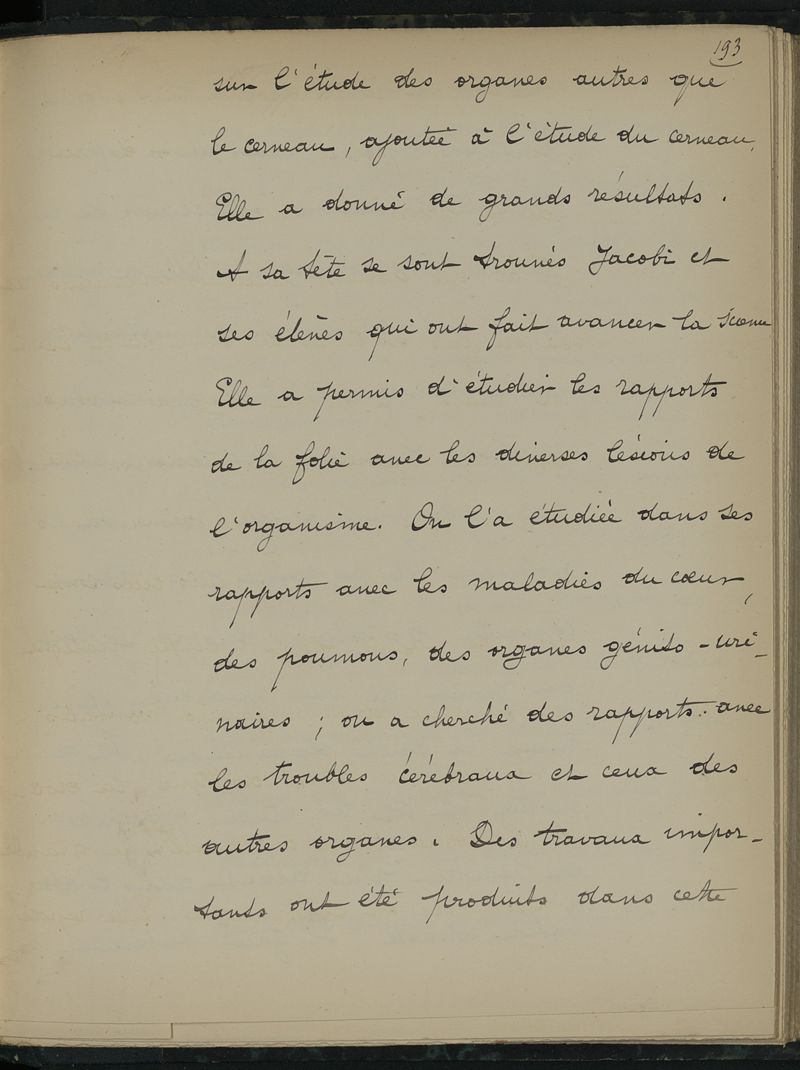 193
sur l'étude des organes autres que
le cerveau, ajoutée à l'étude du cerveau.
Elle a donné de grands résultats.
A sa tête se sont trouvés Jacobi et
ses élèves qui ont fait avancer la science
Elle a permis d'étudier les rapports
de la folie avec les diverses lésions de
l'organisme. On l'a étudiée dans ses
rapports avec les maladies du cœur,
des poumons, des organes génito-uri-
naires ; on a cherché des rapports avec
les troubles cérébraux et ceux des
autres organes. Des travaux impor-
tants ont été produits dans cette